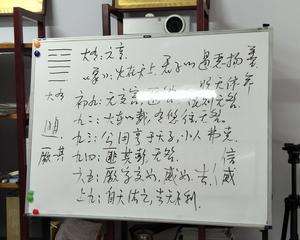 大有：元亨
《象》：火在天上，君子以遏恶扬善
顺天休命
大有
初九：无交害，匪咎，艰则无咎
九二：大车以载，有攸往，无咎
九三：公用亨于天子，小人弗克
九四：匪其彭，无咎
信
六五：厥孚交如，威如，吉
威
上九：自天佑之，吉无不利